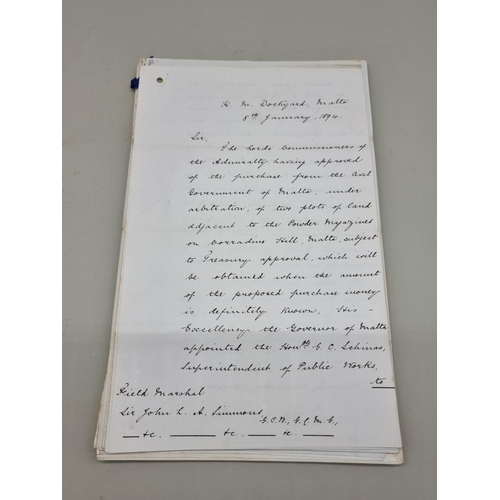 H. M. Dockyard, Malta
8th January, 1890.
Sir,
The Lords Commissioners of
the Admiralty having approved
of the purchase from the Civil
Government of Malta, under
arbitration, of two plots of land
adjacent to the Powder Magazines
on Corradino Hill, Malta, subject
to Treasury approval, which will
be obtained when the amount
of the proposed purchase money
is definitely known, His –
Excellency the Governor of Malta
appointed the Honble G. C. Schinas,
Superintendent of Public Works,
to
Field Marshal
Sir John L. A. Simmons,
G.C.B., G.C.M.G.,
&c. &c. &c.